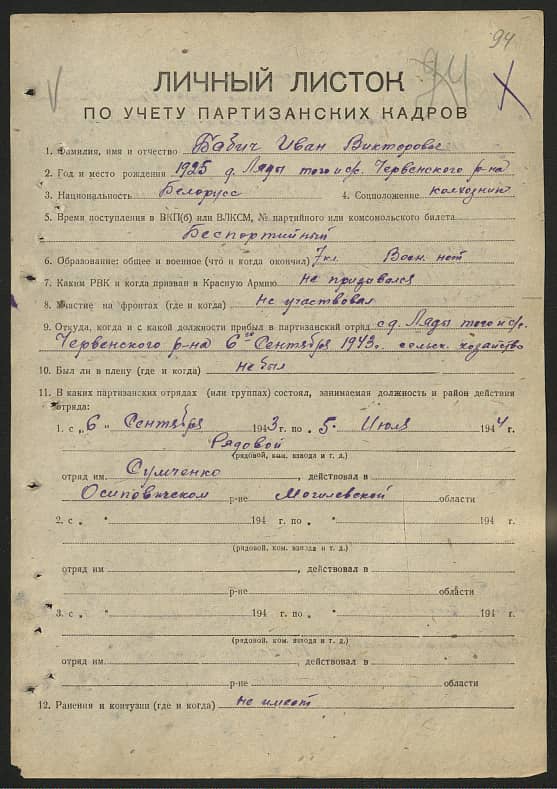 94
ЛИЧНЫЙ ЛИСТОК
ПО УЧЕТУ ПАРТИЗАНСКИХ КАДРОВ
1. Фамилия, имя и отчество Бабич Иван Викторович
2. Год и место рождения 1925 д. Ляды того и ф. Червенского р-на
3. Национальность Белорусс 4. Соцположение колхозник
5. Время поступления в ВКП(б) или ВЛКСМ, № партийного или комсомольского билета
Беспортийный
6. Образование: общее и военное (что и когда окончил) 7 кл. Воен. нет
7. Каким РВК и когда призван в Красную Армию не призывался
8. Участие на фронтах (где и когда) Не участвовал
9. Откуда, когда и с какой должности прибыл в партизанский отряд с д. Ляды того и ф.
Червенского р-на 6го Сентября 1943г. сельск. хозяйство
10. Был ли в плену (где и когда) не был
11. В каких партизанских отрядах (или группах) состоял, занимаемая должность и район действия
отряда:
1. с „6 " Сентября 1943г. по „ 5. Июля 1944 г.
Рядовой
(рядовой, ком. взвода и т. д.)
отряд им Сумченко , действовал в
Осиповичском р-не Могилевской области
2. с „ " 194 г. по „ " 194 г.
(рядовой, ком. взвода и т. д.)
отряд им , действовал в
р-не области
3. с „ " 194 г. по „ " 194 г.
(рядовой, ком. взвода и т. д.)
отряд им , действовал в
р-не области
12. Ранения и контузии (где и когда) не имеет